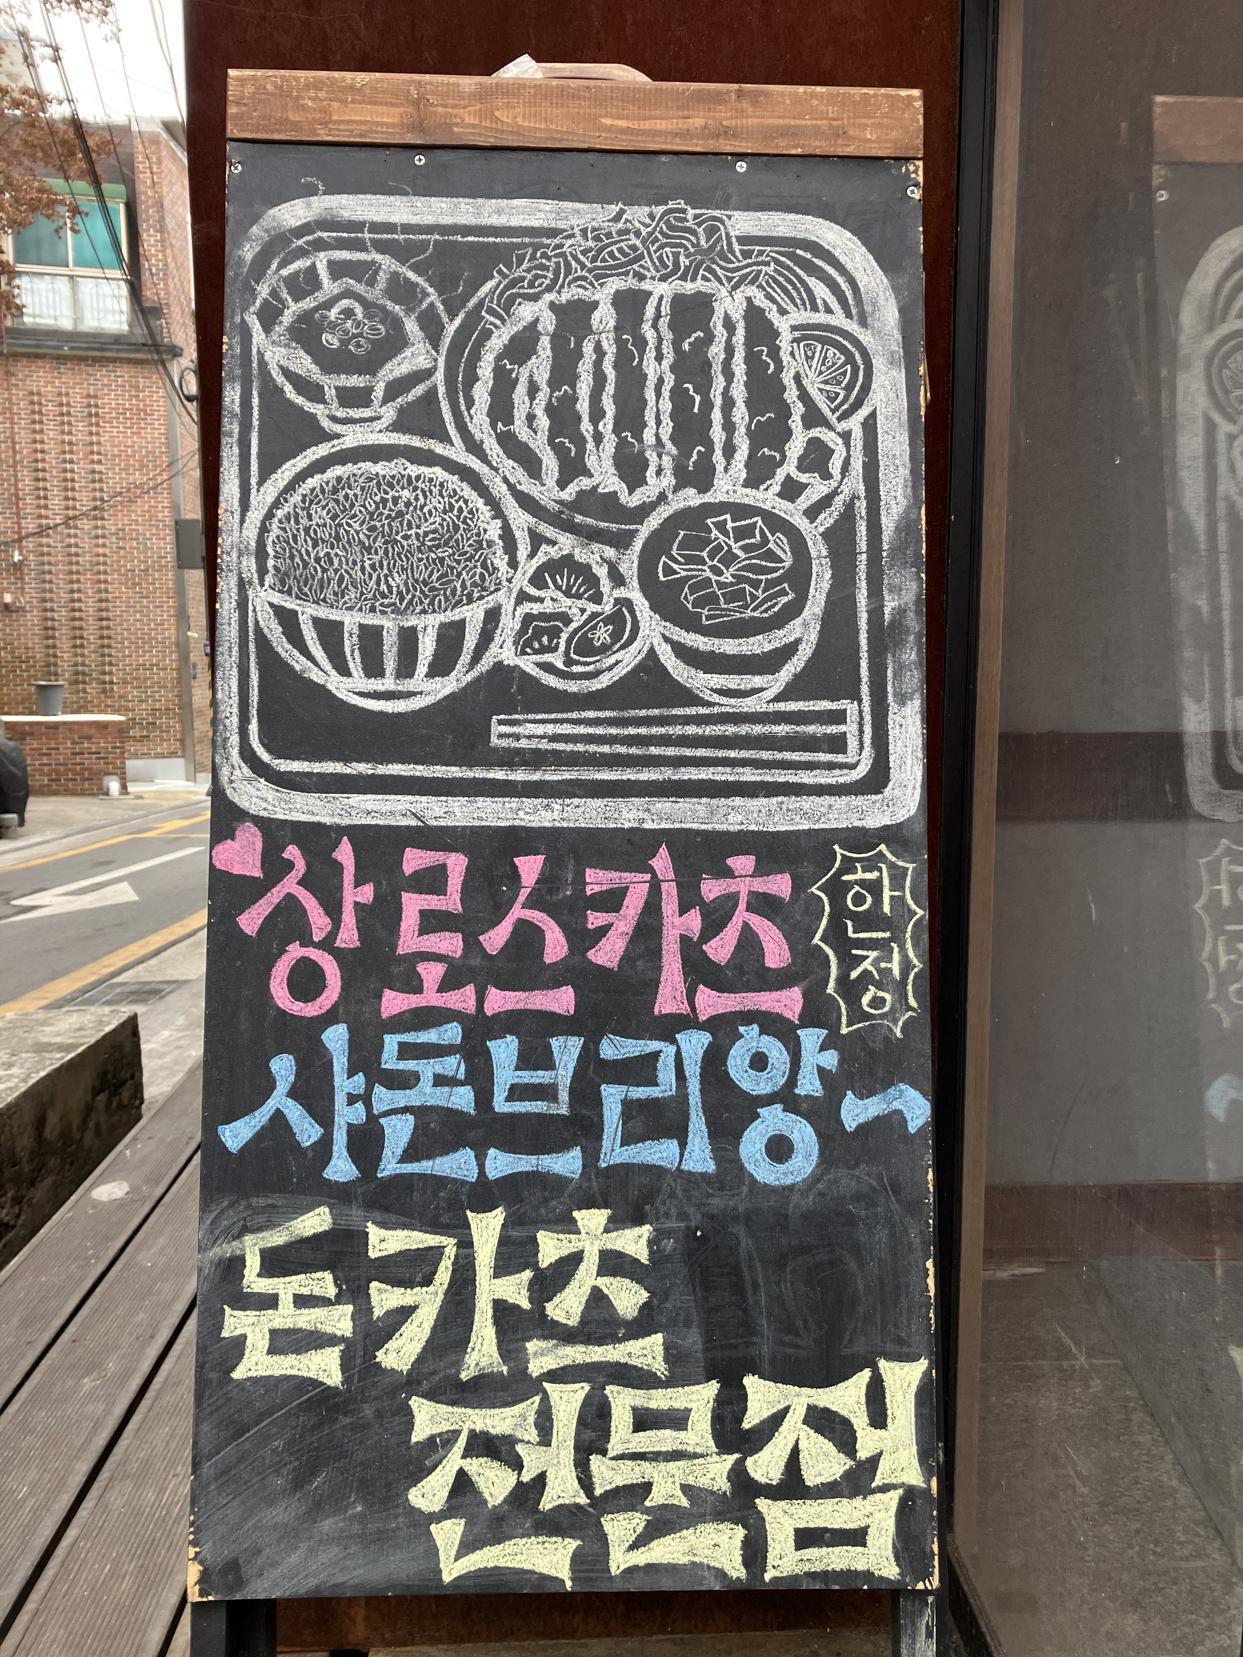 상로스카츠 한정
샤돈브리앙~
돈카츠
전문점